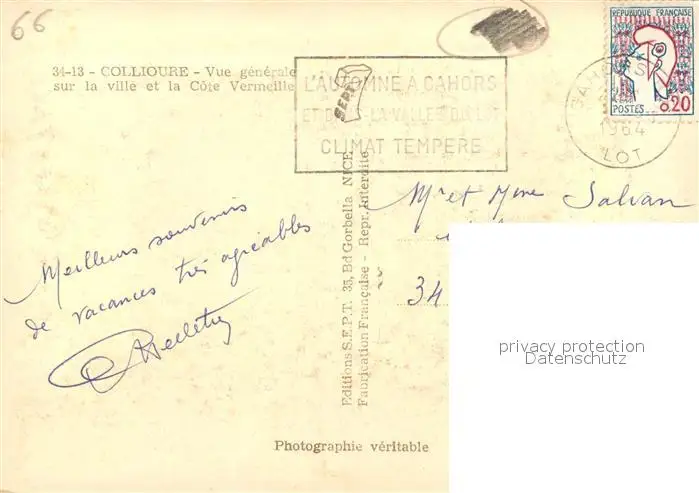 66
34-13 - COLLIOURE - Vue générale
sur la ville et la Côte Vermeille
L'AUTOMNE A CAHORS
CLIMAT TEMPERE
REPUBLIQUE FRANÇAISE
POSTES 0.20
CAHORS
1964
LOT
Mr et Mme Salvan
34
Meilleurs souvenirs
de vacances très agréables
Editions S.E.P.T. 35, Bd Gorbella NICE
Fabrication Française - Repr. Interdite
SEPT
Photographie véritable
privacy protection
Datenschutz